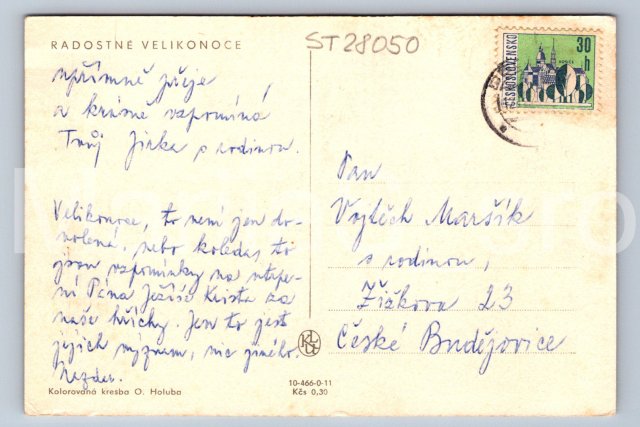 RADOSTNÉ VELIKONOCE
ST28050
upřímně přeje
a krásně vzpomíná
Tvůj Jirka s rodinou.
Velikonoce, to není jen do-
volená, nebo koleda, to
jsou vzpomínky na utrpe-
ní Pána Ježíše Krista za
naše hříchy. Jen to jest
jejich význam, nic jiného.
Nazdar.
Kolorovaná kresba O. Holuba
10-466-0-11
Kčs 0,30
ČESKOSLOVENSKO
30
h
Pan
Vojtěch Maršík
s rodinou,
Žižkova 23
České Budějovice